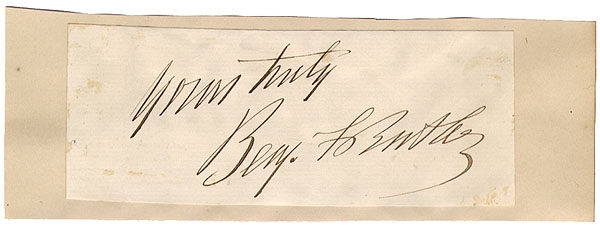 yours truly
Benj. F Butler